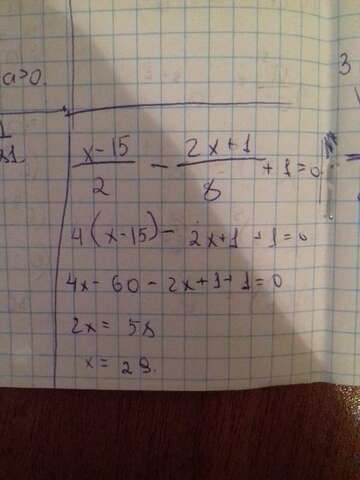 a>0.
3
1
x-15/2 - 2x+1/8 + 1 = 0
4(x-15) - 2x+1 + 1 = 0
4x - 60 - 2x + 1 + 1 = 0
2x = 58
x = 29.